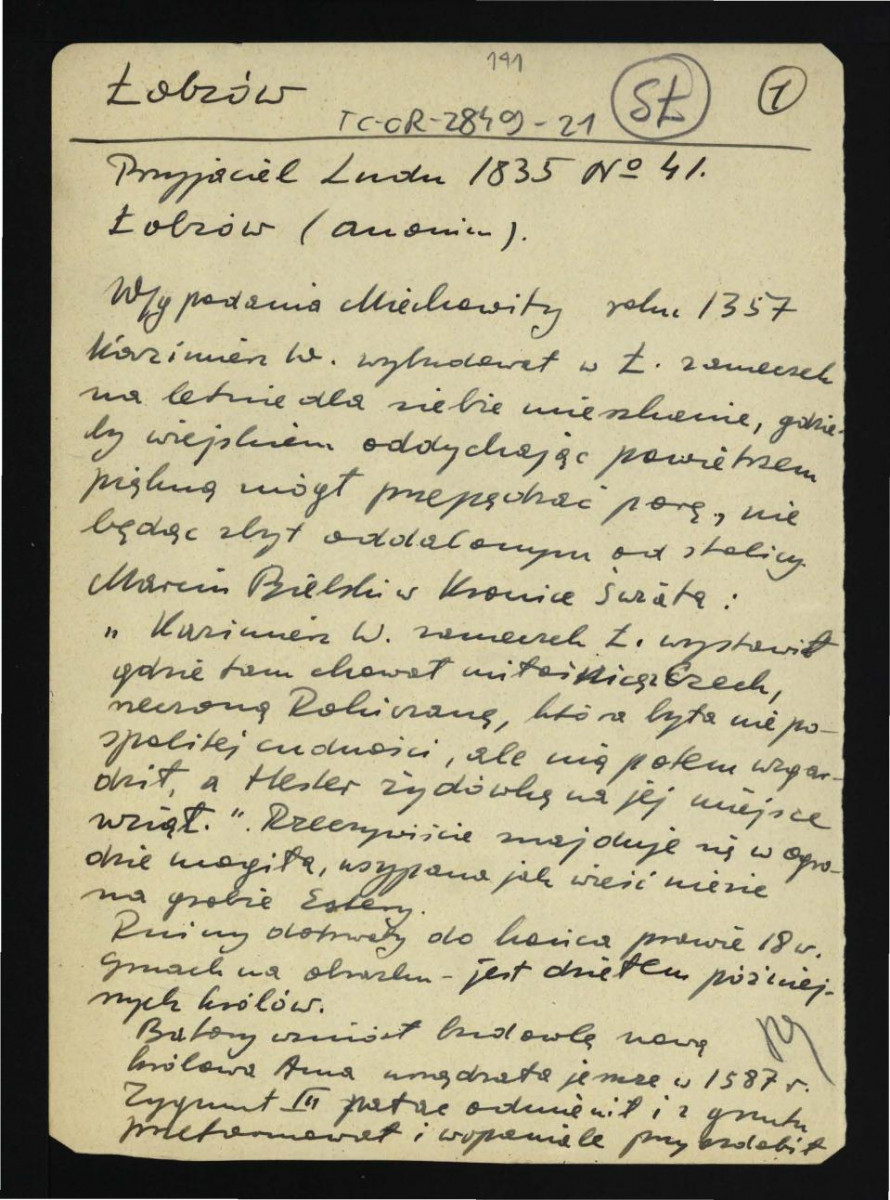 191
Łobzów
TC-OR-2849-21
SŁ
1
Przyjaciel Ludu 1835 No 41.
Łobzów (anonim).
W/g podania Miechowity roku 1357
Kazimierz W. wybudował w Ł. zameczek
na letnie dla siebie mieszkanie, gdzie-
by wiejskiem oddychając powietrzem
piękną mógł przepędzać porę, nie
będąc zbyt oddalonym od stolicy.
Marcin Bielski w Kronice Świata:
„Kazimierz W. zameczek Ł. wystawił
gdzie tam chował miłośnicę z Czech,
rzeczoną Rokiczaną, która była niepo-
spolitej cudności, ale nią potem wzgar-
dził, a Hester żydówkę na jej miejsce
wziął.". Rzeczywiście znajduje się w ogro-
dzie mogiła, usypana jak wieść niesie
na grobie Estery.
Ruiny dotrwały do końca prawie 18 w.
Gmach na obrazku - jest dziełem później-
szych królów.
Batory wzniósł budowlę nową
królowa Anna urządzała jeszcze w 1587 r.
Zygmunt III pałac odmienił i z gruntu
przeformował i wspaniale przyozdobił